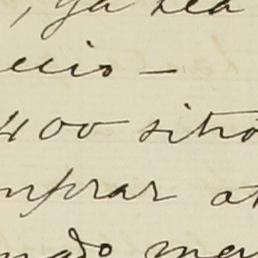 , ya sea
ecio —
400 sitio
mprar ot
nado mer